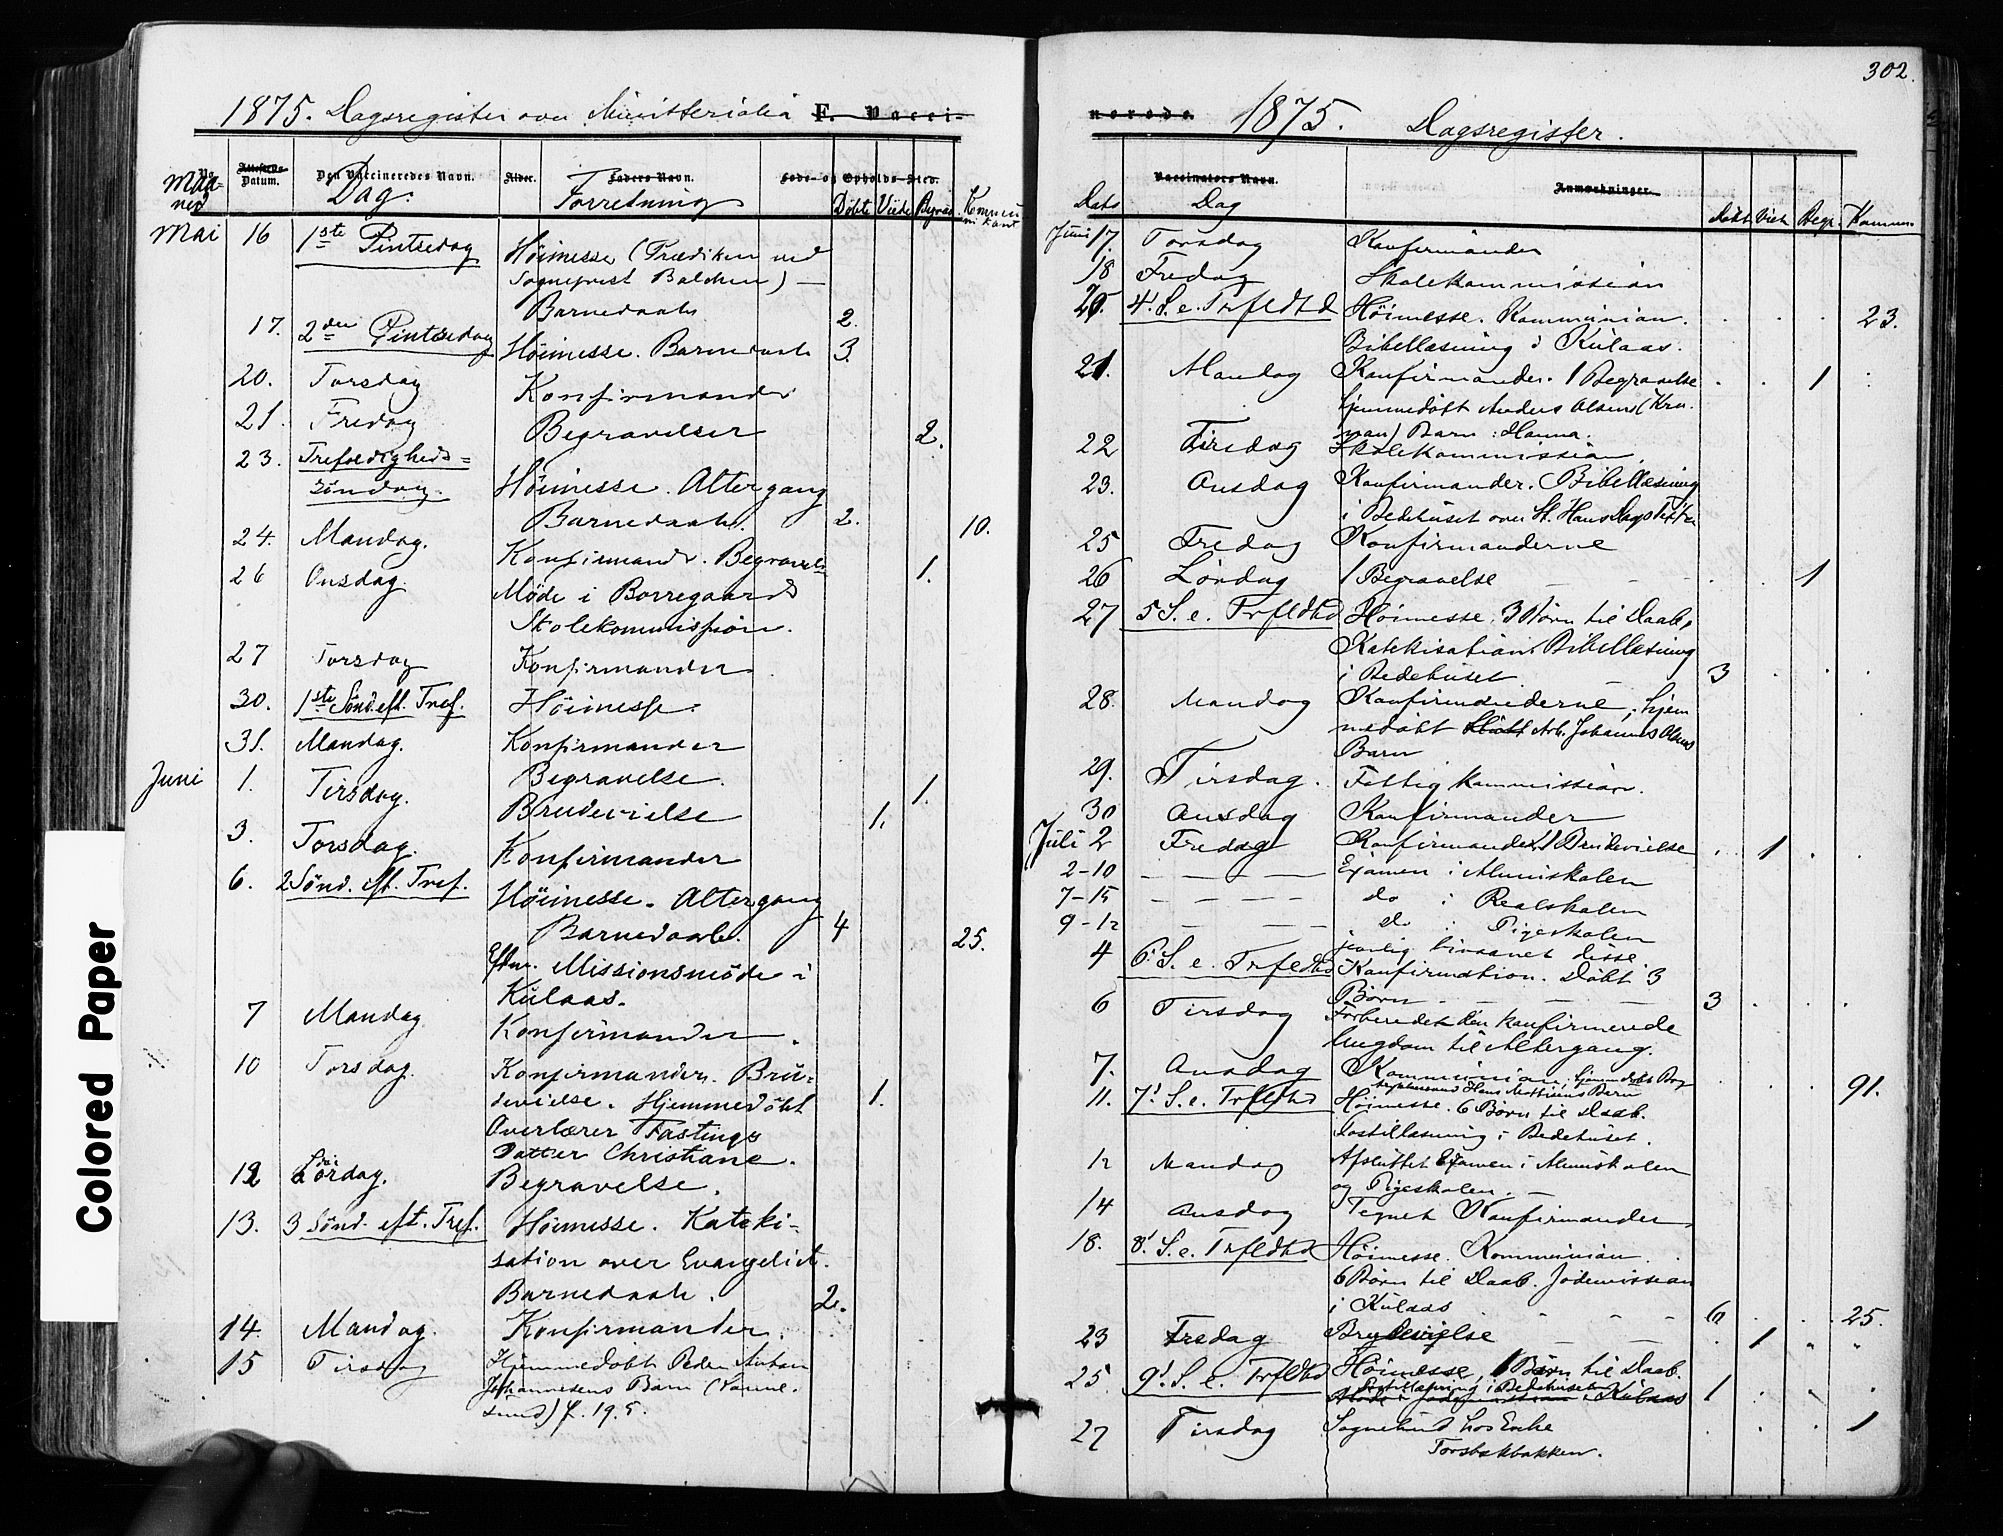 1875. Dagsregister over Ministerialia F. Vacci-
Maaned Attestens Datum. Den Vaccineredes Navn. Alder. Faders Navn. Føde- og Opholds-Sted.
Dag. Forretning Døbte Viede Begrav. Kommunikant
Mai 16 1ste Pintsedag Høimesse (Prædiken ved
Sogneprest Balchen) —
Barnedaab 2.
17. 2den Pintsedag Høimesse. Barnedaab 3.
20. Torsdag Konfirmander
21. Fredag Begravelser 2.
23. Trefoldigheds-
Søndag. Høimesse. Altergang
Barnedaab. 2. 10.
24. Mandag. Konfirmand. Begravels 1.
26 Onsdag. Møde i Borregaards
Skolekommission.
27 Torsdag Konfirmander
30. 1ste Sønd. eft. Tref. Høimesse.
31. Mandag. Konfirmander
Juni 1. Tirsdag. Begravelse. 1.
Brudevielse 1.
3. Torsdag. Konfirmander
6. 2 Sønd. eft. Tref. Høimesse. Altergang
Barnedaab. 4 25.
Eftm. Missionsmøde i
Kulaas.
7 Mandag Konfirmander.
10 Torsdag. Konfirmander. Bru-
devielse. Hjemmedøbt 1.
Overlærer Fastings
Datter Christiane.
12 Lørdag. Begravelse.
13. 3 Sønd. eft. Tref. Høimesse. Kateki-
sation over Evangeliet.
Barnedaab. 2.
14. Mandag. Konfirmander.
15 Tirsdag Hjemmedøbt Peder Anton
Johannesens Barn (Vanne-
sund) f. 19.5.
Colored Paper
302.
norede. 1875. Dagsregister.
Vaccinators Navn. Anmærkninger.
Dato Dag Døbt Viet Begr. Kommun.
Juni 17. Torsdag Konfirmander
18 Fredag Skolekommission
20. 4' S. e. Trfldhd Høimesse. Kommunion. 23.
Bibellæsning i Kulaas.
21. Mandag Konfirmander. 1 Begravelse 1
hjemmedøbt Anders Olsens (Kru-
man) Barn: Hanna.
22 Tirsdag Skolekommission.
23. Onsdag Konfirmander. Bibellæsning
i Bedehuset over St. Hans Dags Text
25 Fredag Konfirmanderne
26 Lørdag 1 Begravelse 1
27 5 S. e. Trfldhd Høimesse. 3 Børn til Daab,
Katekisation. Bibellæsning
i Bedehuset 3
28. Mandag Konfirmanderne; hjem
medøbt Arb. Johannes Olsens
Barn
29. Tirsdag. Fattigkommission.
30 Onsdag Konfirmander
Juli 2 Fredag Konfirmander 1 Brudevielse 1
2-10 — — — — Examen i Almuskolen
7-15 — — — — do i Realskolen
9-12 — — — do i Pigeskolen
jevnlig bivaanet disse.
4 6' S. e. Trfldhd Konfirmation. Døbt 3
Børn 3
6 Tirsdag Forberedet den konfirmerede
Ungdom til Altergang.
7. Onsdag Kommunion, hjemdøbt Bog 91.
Hans Barn
11. 7' S. e. Trfldhd Høimesse. 6 Børn til Daab.
Postillæsning i Bedehuset.
12 Mandag Afsluttet Examen i Almuskolen
og Pigeskolen. —
14 Onsdag Tegnet Konfirmander
18. 8' S. e. Trfldhd Høimesse. Kommunion.
6 Børn til Daab. Jødemission
i Kulaas 6 25.
23 Fredag Brudevielse 1
25 9' S. e. Trfldhd Høimesse, 1 Barn til Daab.
Postillæsning i Bedehuset
i Kulaas 1
27 Tirsdag Sognebud hos Enke 1
Torsbakbakken.